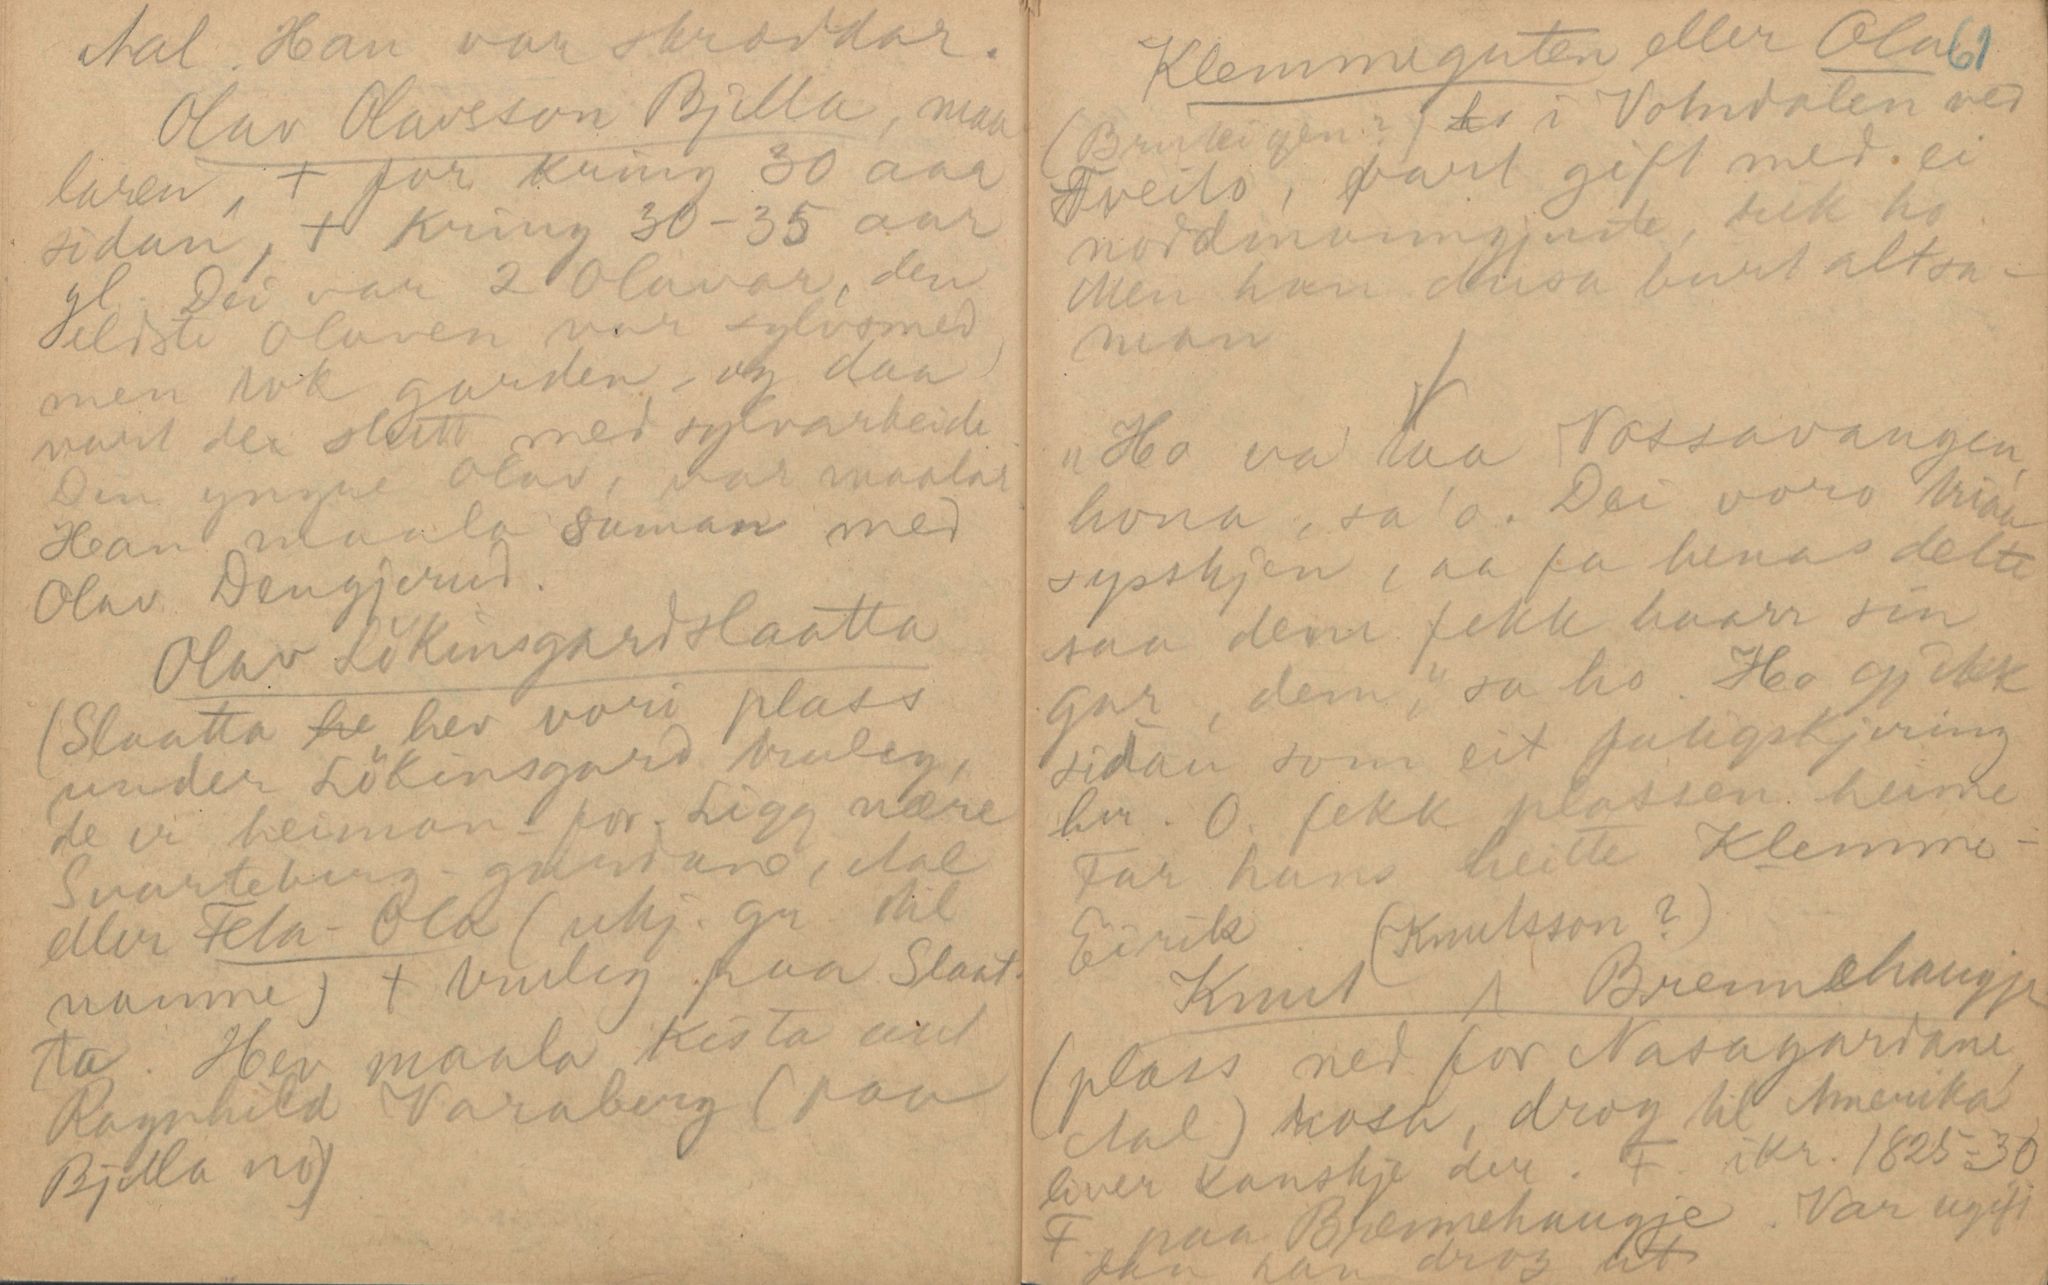 Aal. Han var skræddar.
Olav Olavsson Bjella, maa
laren, + for kring 30 aar
sidan, + kring 30-35 aar
gl. Dei var 2 Olavar, den
eldste Olaven var sylvsmed
men tok garden, og daa
vart der slutt med sylvarbeide
Den yngre Olav, var maalar
Han maala saman med
Olav Dengjerud.
Olav Lökinsgardslaatta
(Slaatta he hev vori plass
under Lökinsgard truleg,
de er heiman-for. Ligg nære
Svarteberg-gardane, Aal
eller Fela-Ola (ukj. gr. til
namne) + truleg paa Slaat-
ta. Hev maala kista aat
Ragnhild Varaberg (paa
Bjella no)
Klemmeguten eller Ola 61
i Votndalen ved
Tveito, vart gift med ei
ho
Men han dansa burt altsa-
man
"Ho va' taa Vossavangen,
hona, sa'o. Dei voro triaa
sysskjen, aa fa henas delte
saa dem fekk kaarr sin
gar, dem," sa ho. Ho gjekk
sidan som eit fatigskjring
her. O. fekk plassen heime
Far hans heitte Klemme-
Eirik
Knut (Knutsson?) Brennehaugje
(plass ned for Nasagardane,
Aal) rosa, drog til Amerika
liver kanskje der. F. ikr. 1825-30
F. paa Brennehaugje. Var ugift
daa han drog ut